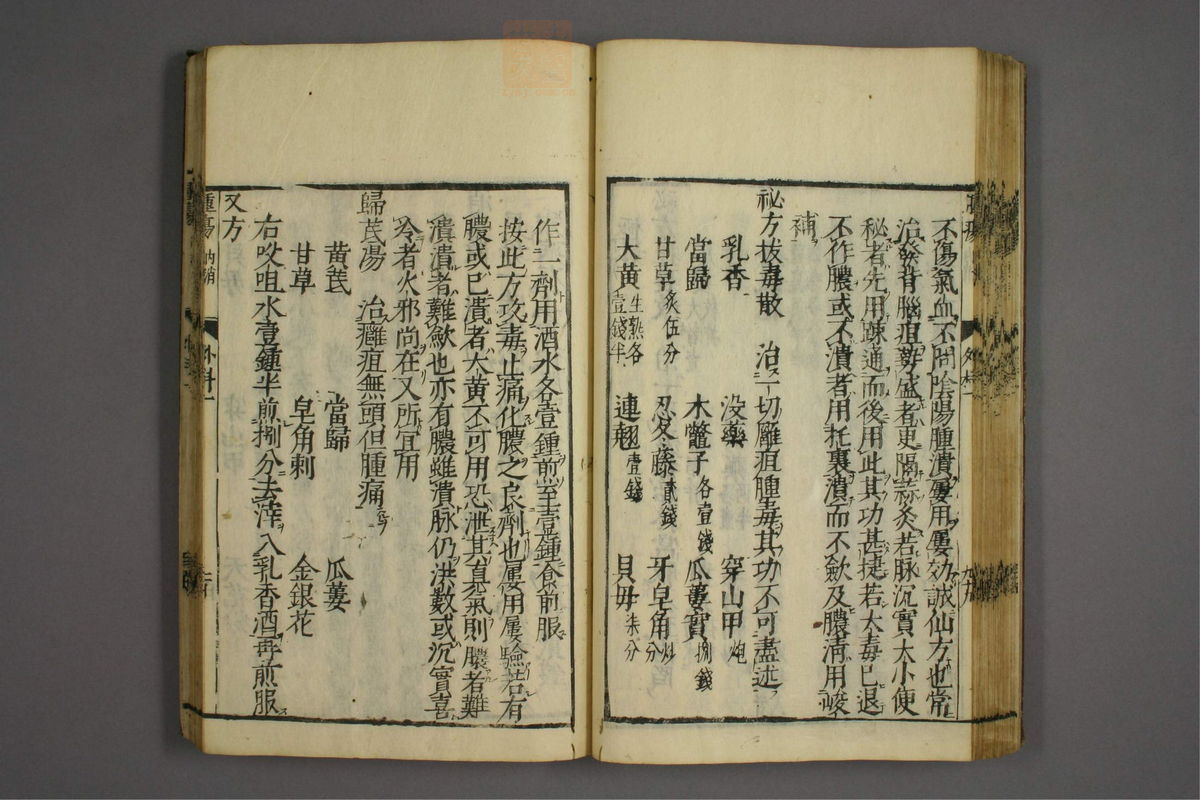 不傷氣血不問陰陽腫潰屢用屢効誠仙方也常
治發背腦疽勢盛者更隔蒜灸若脉沉實大小便
秘者先用踈通而後用此其功甚捷若大毒已退
不作膿或不潰者用托裏潰而不斂及膿清用峻
補
秘方拔毒散 治一切癰疽腫毒其功不可盡述
乳香 没藥 穿山甲炮
當歸 木鱉子各壹錢 瓜蔞實捌錢
甘草炙伍分 忍冬藤貳錢 牙皂角炒分
大黃生熟各壹錢半 連翹壹錢 貝母柒分
作一劑用酒水各壹鍾煎至壹鍾食前服
按此方攻毒止痛化膿之良劑也屢用屢驗若有
膿或已潰者大黃不可用恐泄其真氣則膿者難
潰潰者難斂也亦有膿雖潰脉仍洪數或沉實喜
冷者火邪尚在又所宜用
歸芪湯 治癰疽無頭但腫痛
黃芪 當歸 瓜蔞
甘草 皂角刺 金銀花
右㕮咀水壹鍾半煎捌分去滓入乳香酒再煎服
又方
外科一